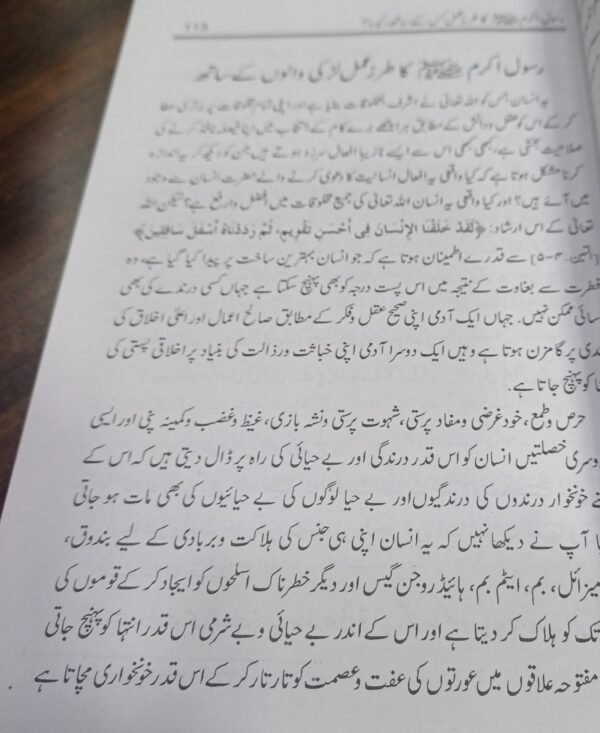 رسول اکرم ﷺ کا طرز عمل کس کے ساتھ کیسا؟ 119
رسول اکرم ﷺ کا طرز عمل لڑکی والوں کے ساتھ
یہ انسان جس کو اللہ تعالی نے اشرف المخلوقات بنایا ہے اور اپنی تمام مخلوقات پر برتری عطا
کر کے اس کو عقل و دانش کے مطابق ہر اچھے برے کام کے انتخاب میں اپنا فیصلہ نافذ کرنے کی
صلاحیت بخشی ہے، کبھی کبھی اس سے ایسے نازیبا افعال سرزد ہوتے ہیں جن کو دیکھ کر یہ اندازہ
کرنا مشکل ہوتا ہے کہ کیا واقعی یہ افعال انسانیت کا دعوی کرنے والے حضرت انسان سے وجود
میں آئے ہیں؟ اور کیا واقعی یہ انسان اللہ تعالی کی جمیع مخلوقات میں افضل و ارفع ہے؟ لیکن اللہ
تعالی کے اس ارشاد: ﴿لَقَدْ خَلَقْنَا الإِنْسَانَ فِی أَحْسَنِ تَقْوِيمٍ، ثُمَّ رَدَدْنَاهُ أَسْفَلَ سَافِلِينَ﴾
[التین: ۴-۵] سے قدرے اطمینان ہوتا ہے کہ جو انسان بہترین ساخت پر پیدا کیا گیا ہے، وہ
فطرت سے بغاوت کے نتیجہ میں اس پست درجہ کو بھی پہنچ سکتا ہے جہاں کسی درندے کی بھی
سائی ممکن نہیں۔ جہاں ایک آدمی اپنی صحیح عقل و فکر کے مطابق صالح اعمال اور اعلی اخلاق کی
ندی پر گامزن ہوتا ہے وہیں ایک دوسرا آدمی اپنی خباثت ورذالت کی بنیاد پر اخلاقی پستی کی
کو پہنچ جاتا ہے۔
حرص و طمع، خود غرضی و مفاد پرستی، شہوت پرستی و نشہ بازی، غیظ و غضب و کمینہ پنی اور ایسی
وسری خصلتیں انسان کو اس قدر درندگی اور بے حیائی کی راہ پر ڈال دیتی ہیں کہ اس کے
خونخوار درندوں کی درندگیوں اور بے حیا لوگوں کی بے حیائیوں کی بھی مات ہو جاتی
آپ نے دیکھا نہیں کہ یہ انسان اپنی ہی جنس کی ہلاکت و بربادی کے لیے بندوق،
میزائل، بم، ایٹم بم، ہائیڈروجن گیس اور دیگر خطرناک اسلحوں کو ایجاد کر کے قوموں کی
تک کو ہلاک کر دیتا ہے اور اس کے اندر بے حیائی و بے شرمی اس قدر انتہا کو پہنچ جاتی
مفتوحہ علاقوں میں عورتوں کی عفت و عصمت کو تار تار کر کے اس قدر خونخواری مچاتا ہے